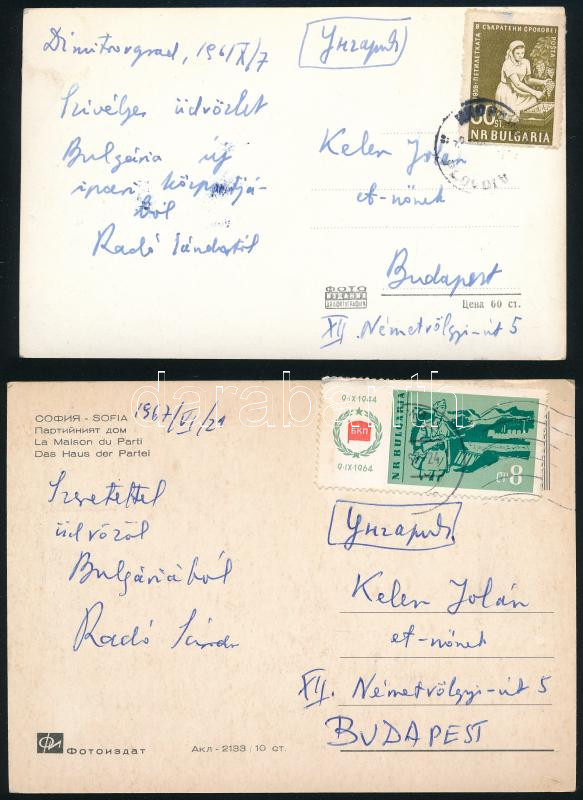 Dimitrovgrad, 1961 X/7
Szivélyes üdvözlet
Bulgária új
ipari központjá-
ból
Radó Sándortól
Унгария
Kelen Jolán
et-nőnek
Budapest
XII. Németvölgyi-út 5
1959-ПЕТИЛЕТКАТА В СЪКРАТЕНИ СРОКОВЕ!
POŠTA
60 ST.
NR BULGARIA
ФОТО
ИЗДАНИЕ
Цена 60 ст.
darabanth
СОФИЯ - SOFIA
Партийният дом
La Maison du Parti
Das Haus der Partei
1967/VI/21
Szeretettel
üdvözöl
Bulgáriából
Radó Sándor
9·IX·1944
БКП
9·IX·1964
NR BULGARIA
СТ 8
Унгария
Kelen Jolán
et-nőnek
XII. Németvölgyi-út 5
BUDAPEST
Фотоиздат
Акл - 2133 / 10 ст.